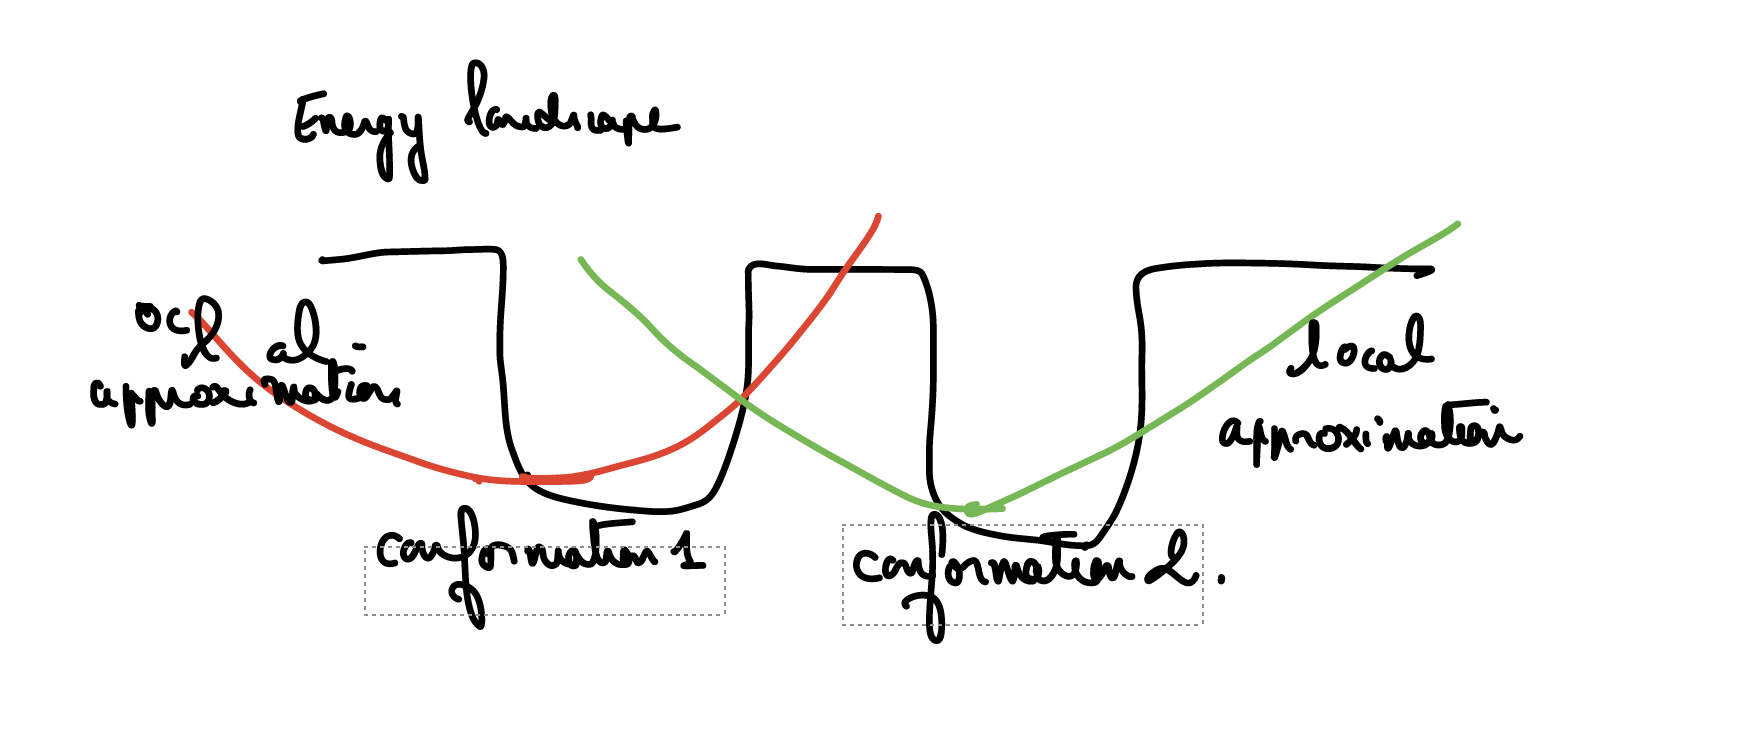 Energy landscape
ocl al
approximation
local
approximation
conformation 1
conformation 2.